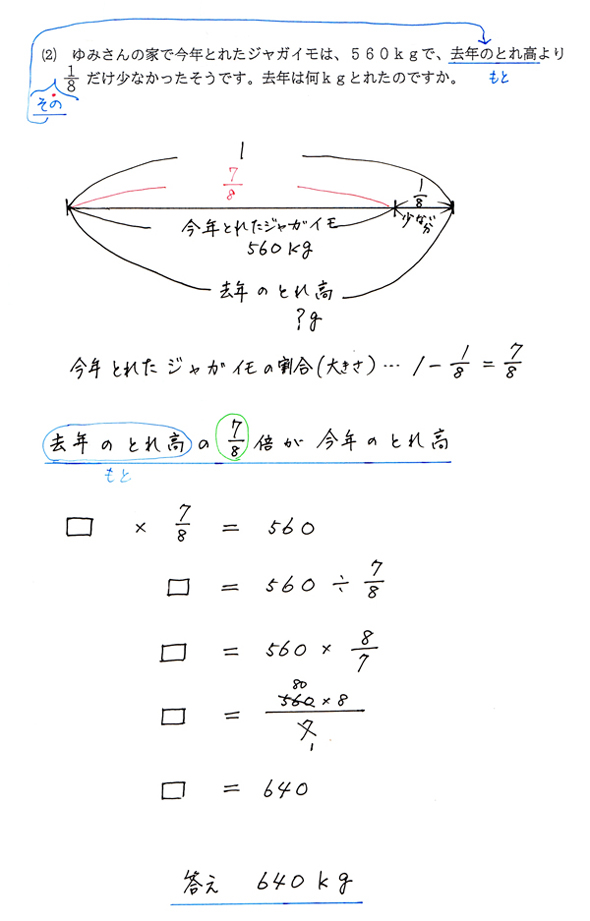 (2) ゆみさんの家で今年とれたジャガイモは、５６０ｋｇで、去年のとれ高より
1/8 だけ少なかったそうです。去年は何ｋｇとれたのですか。
もと
その
1
7/8
1/8
今年とれたジャガイモ
560kg
少ない分
去年のとれ高
?g
今年とれたジャガイモの割合(大きさ)… 1 − 1/8 = 7/8
去年のとれ高の 7/8 倍が今年のとれ高
もと
□ × 7/8 = 560
□ = 560 ÷ 7/8
□ = 560 × 8/7
80
□ = 560 × 8 / 7
1
□ = 640
答え 640kg